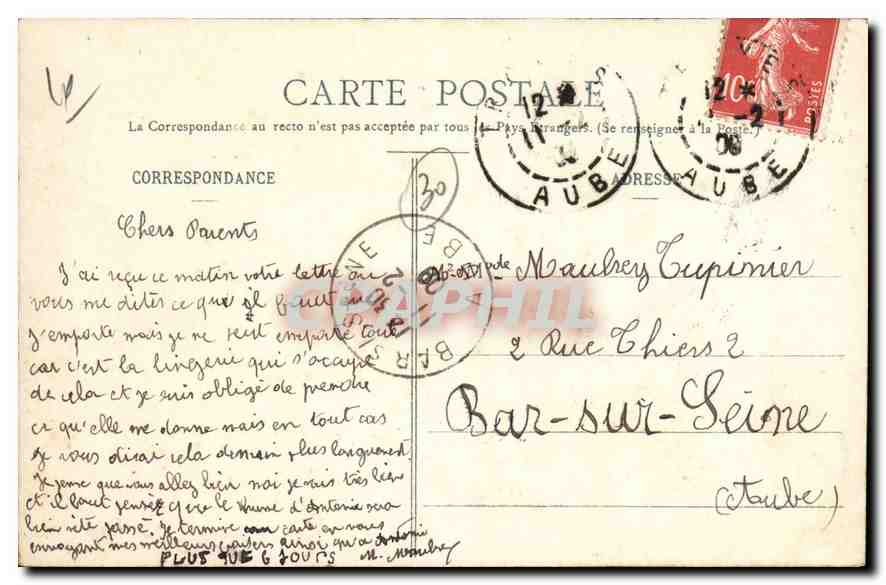 CARTE POSTALE
La Correspondance au recto n'est pas acceptée par tous les Pays Etrangers. (Se renseigner à la Poste.)
CORRESPONDANCE
ADRESSE
30
12
11
AUBE
12 * 
-2
09
AUBE
10
POSTES
BAR-S-SEINE
AUBE
CPAPHIL
Chers Parents
J'ai reçu ce matin votre lettre ou
vous me dites ce que il faut
J'emporte mais je ne peut emporté tout
car c'est la lingerie qui s'occupe
de cela et je suis obligé de prendre
ce qu'elle me donne mais en tout cas
Je vous dirai cela demain plus longuement.
Je pense que vous allez bien moi je suis très bien
et il faut pensez que le rhume d'Antonin sera
bien vite passé. Je termine ma carte en vous
envoyant mes meilleurs baisers ainsi qu'a Antonin
PLUS QUE 6 JOURS
M. Maubrey
Maubrey Tupinier
2 Rue Thiers 2
Bar-sur-Seine
(Aube)